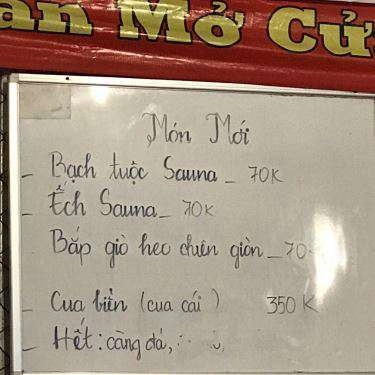 àn Mở Cử
Món Mới
- Bạch tuộc Sauna - 70K
- Ếch Sauna - 70K
Bắp giò heo chiên giòn - 70
- Cua biển (cua cái) 350K
- Hết: càng đá,